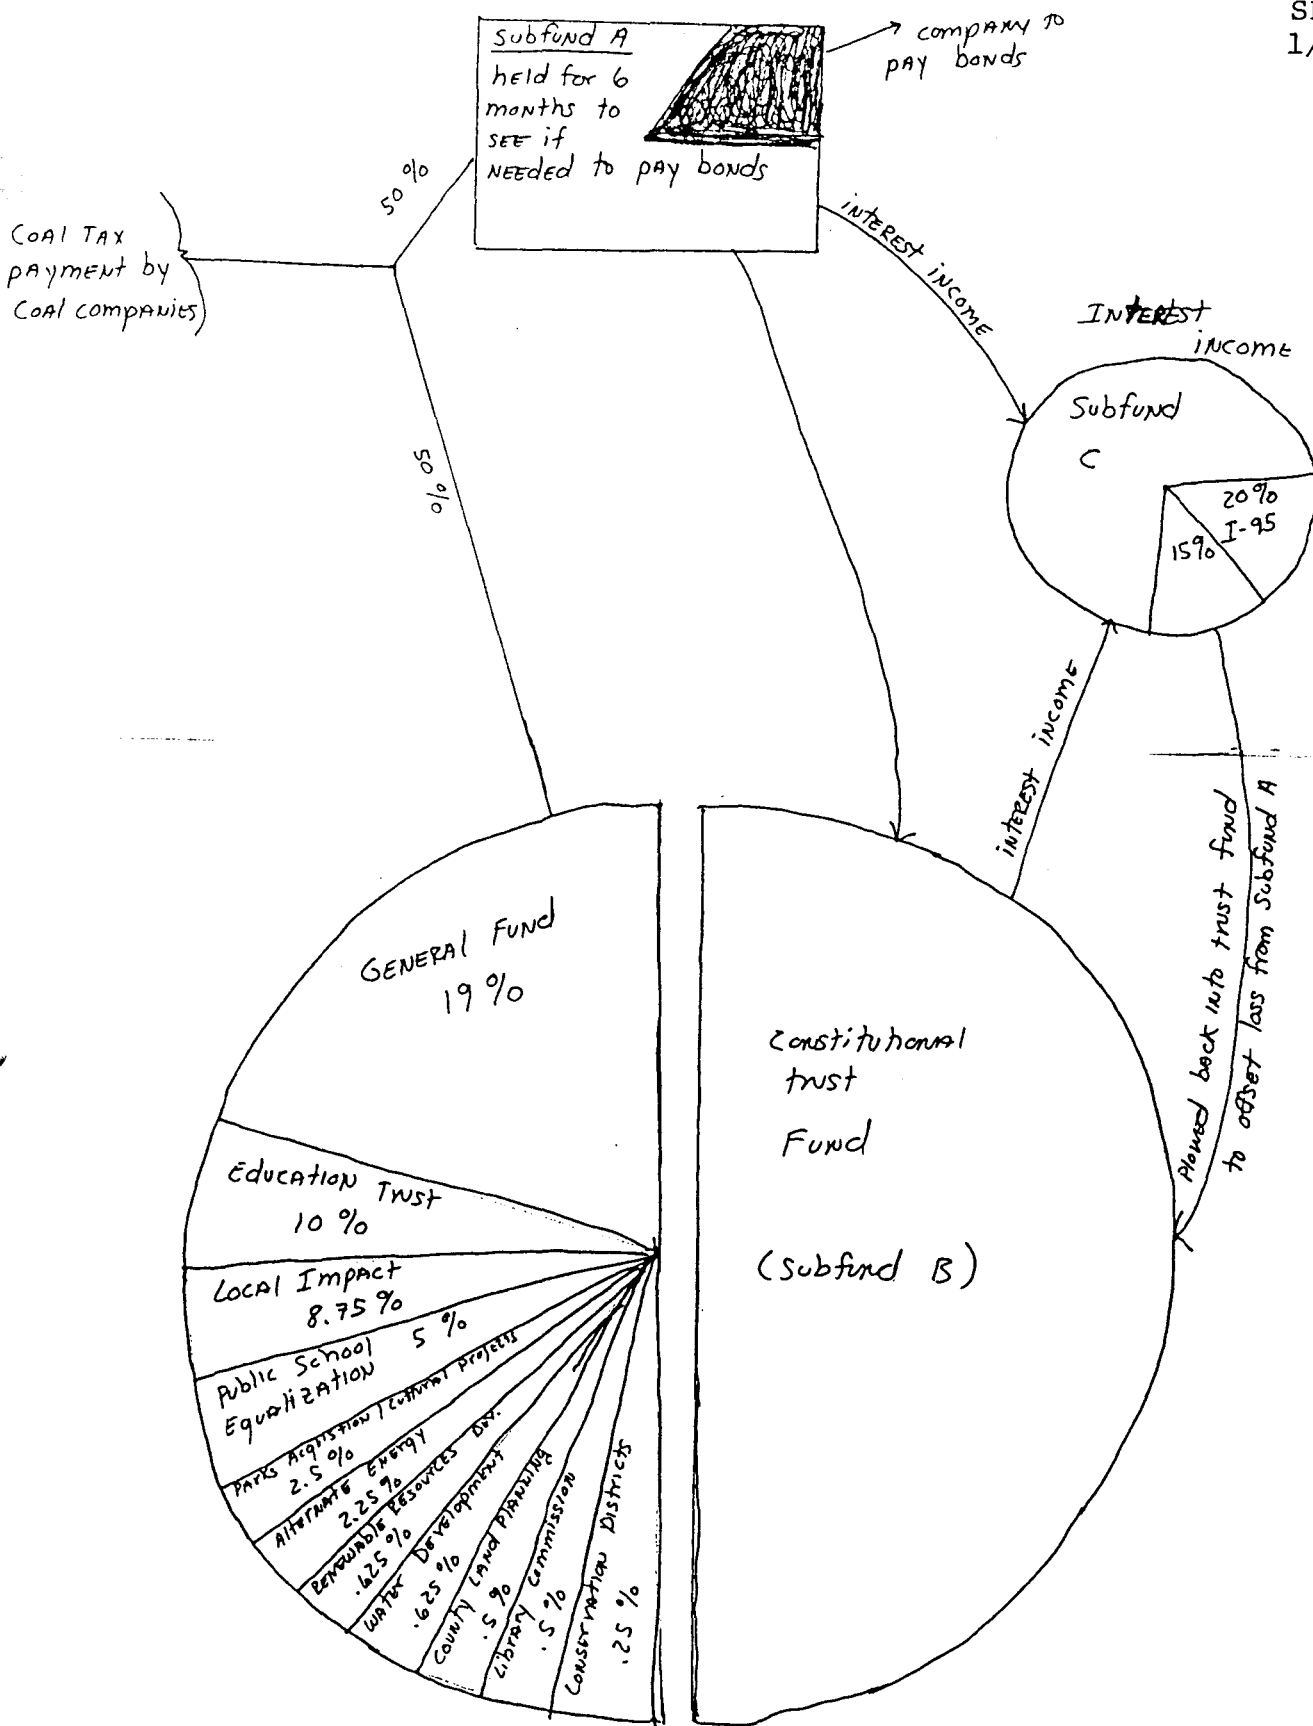 SB
1/
Subfund A
held for 6
months to
SEE if
NEEDED to pay bonds
company to
pay bonds
50%
COAL TAX
payment by
Coal companies
50%
INTEREST INCOME
INTEREST
INCOME
Subfund
C
20%
I-95
15%
INTEREST INCOME
Plowed back into trust fund
to offset loss from Subfund A
GENERAL FUND
19%
EDUCATION TRUST
10%
LOCAL IMPACT
8.75%
Public School 5%
EQUALIZATION
PARKS Acquistion / Cultural Projects
2.5%
Alternate ENERGY
2.25%
RENEWABLE RESOURCES DEV.
.625%
WATER DEVELOPMENT
.625%
COUNTY LAND PLANNING
.5%
Library Commission
.5%
CONSERVATION DISTRICTS
.25%
Constitutional
trust
Fund
(Subfund B)